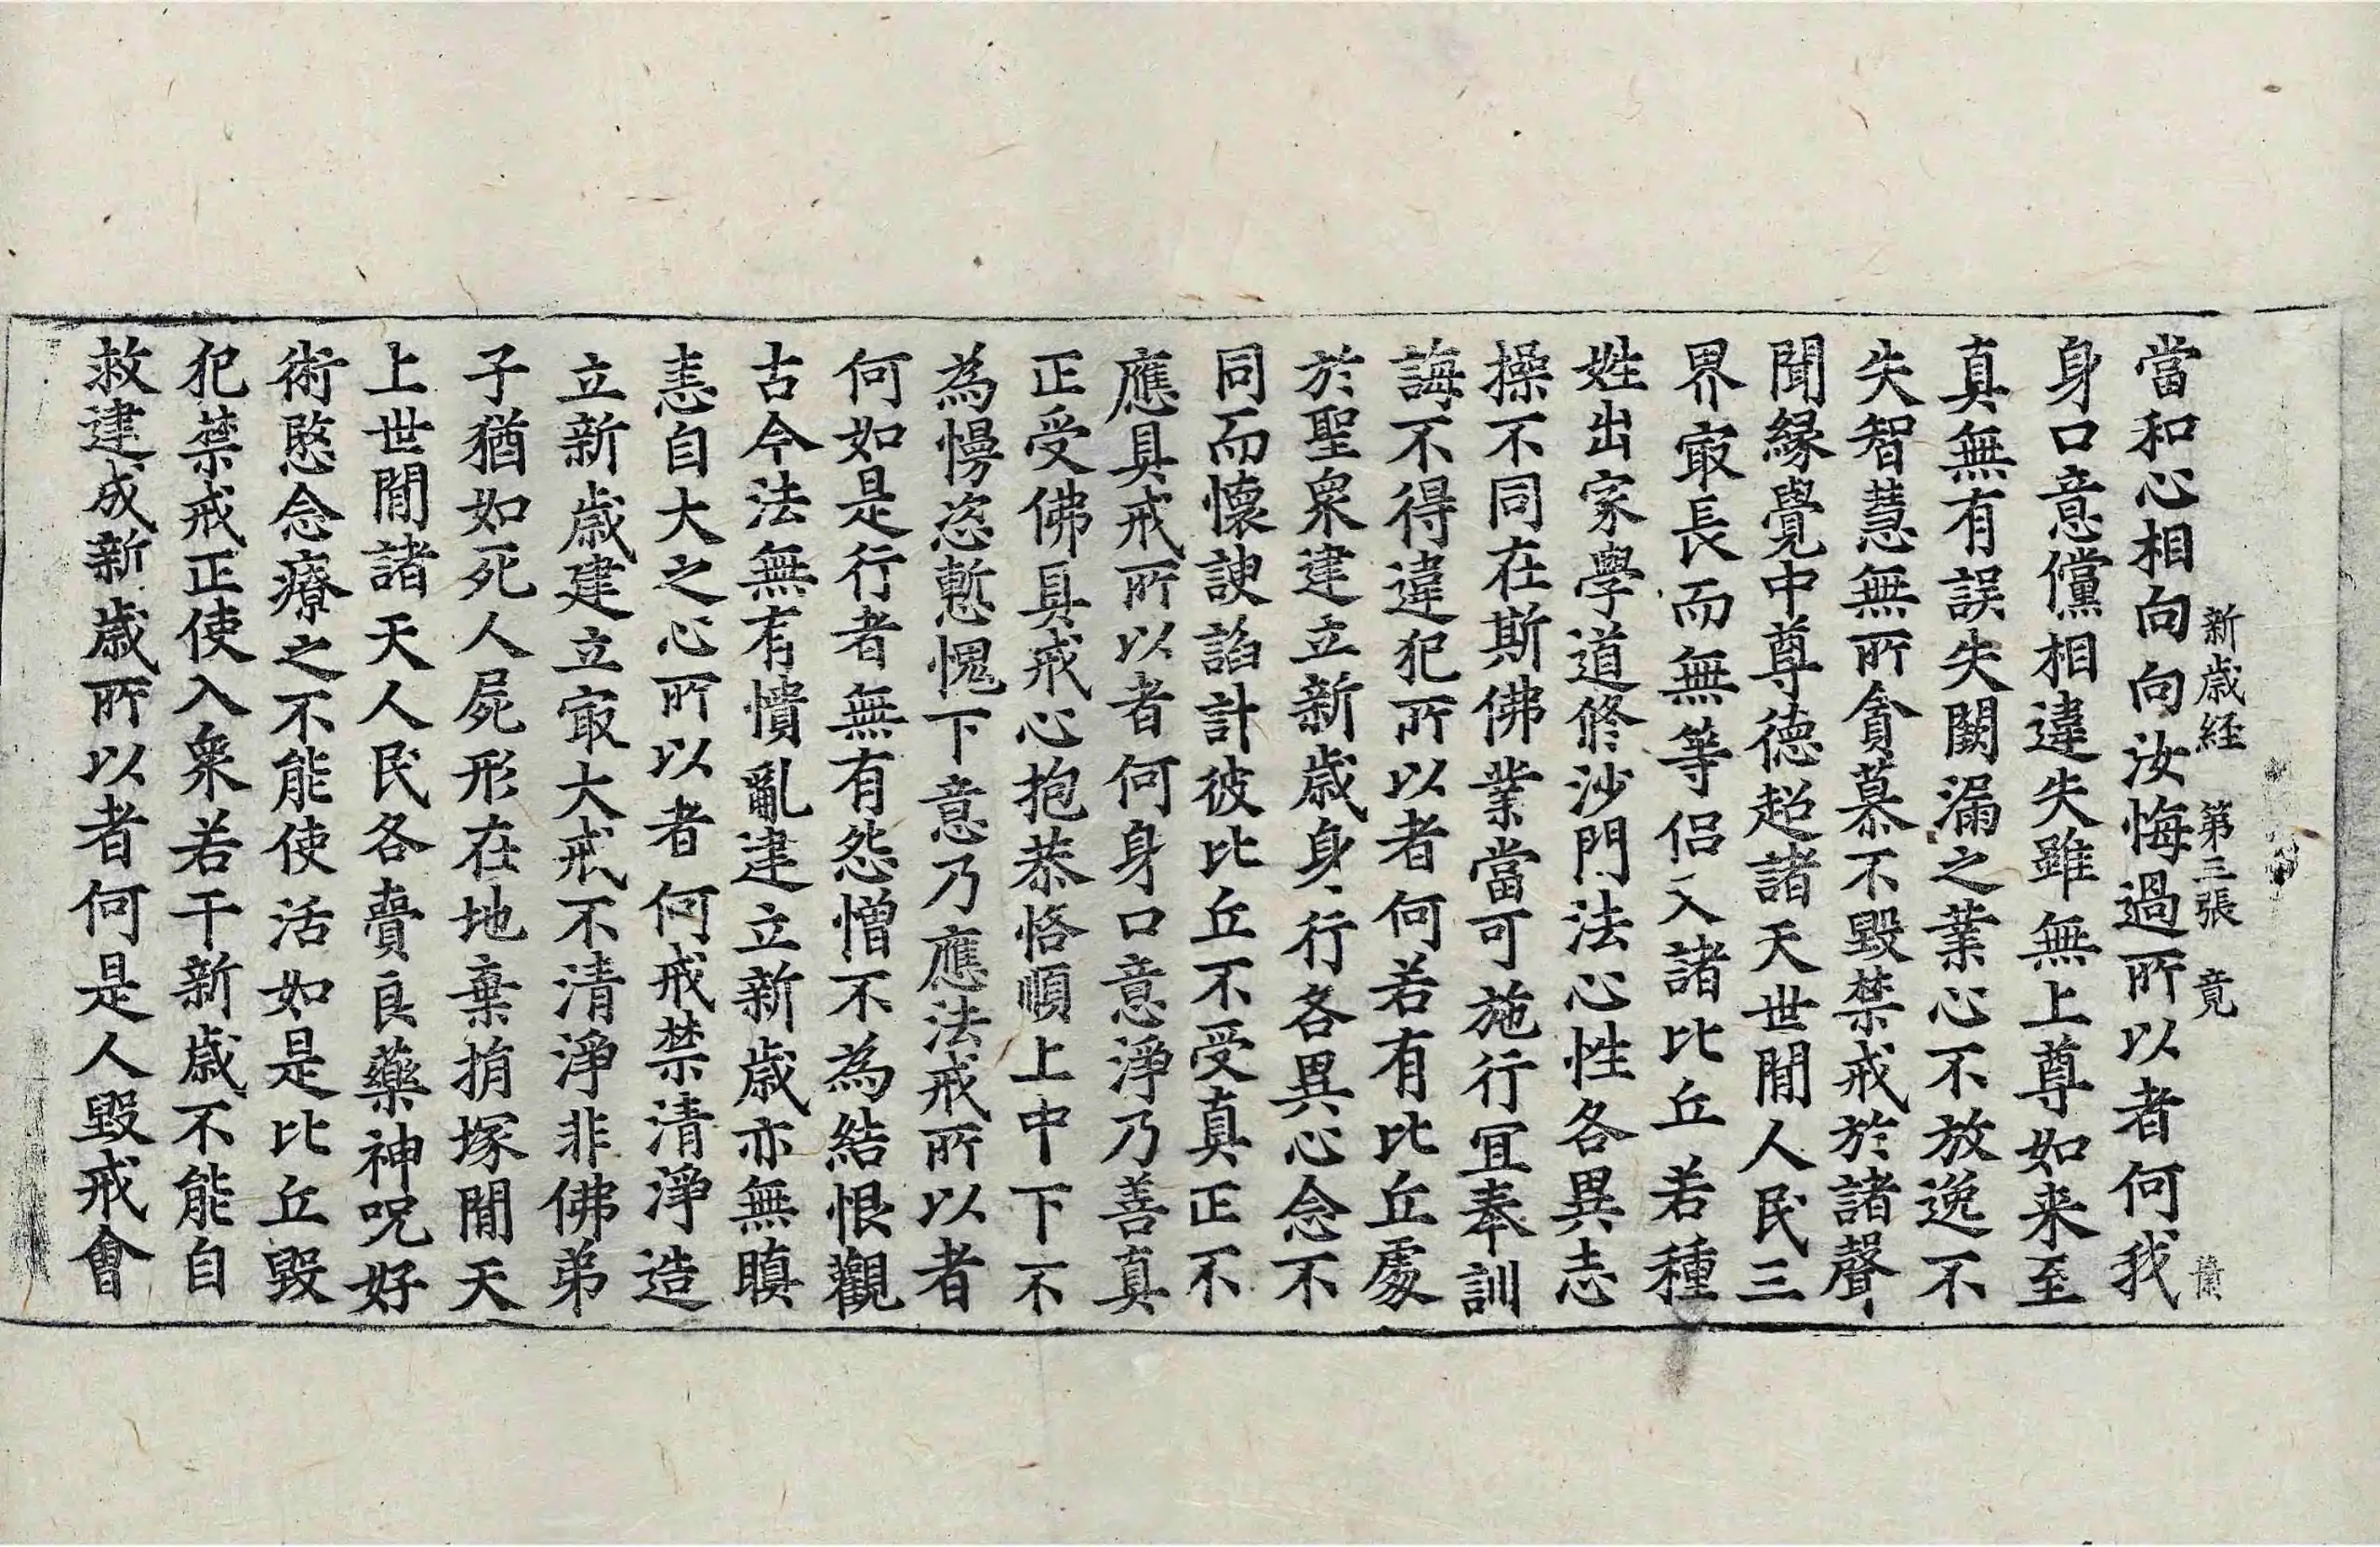 新歳経 第三張 竟
當和心相向向汝悔過所以者何我
身口意儻相違失雖無上尊如来至
真無有誤失闕漏之業心不放逸不
失智慧無所貪慕不毀禁戒於諸聲
聞緣覺中尊德超諸天世間人民三
界㝡長而無等侣入諸比丘若種
姓出家學道修沙門法心性各異志
操不同在斯佛業當可施行宜奉訓
誨不得違犯所以者何若有比丘處
於聖衆建立新歳身行各異心念不
同而懷諛諂計彼比丘不受真正不
應具戒所以者何身口意淨乃善真
正受佛具戒心抱恭恪順上中下不
為慢恣慙愧下意乃應法戒所以者
何如是行者無有怨憎不為結恨觀
古今法無有憒亂建立新歳亦無瞋
恚自大之心所以者何戒禁清淨造
立新歳建立㝡大戒不清淨非佛弟
子猶如死人屍形在地棄捐塚間天
上世間諸天人民各賷良藥神呪好
術愍念療之不能使活如是比丘毀
犯禁戒正使入衆若干新歳不能自
救建成新歳所以者何是人毀戒會